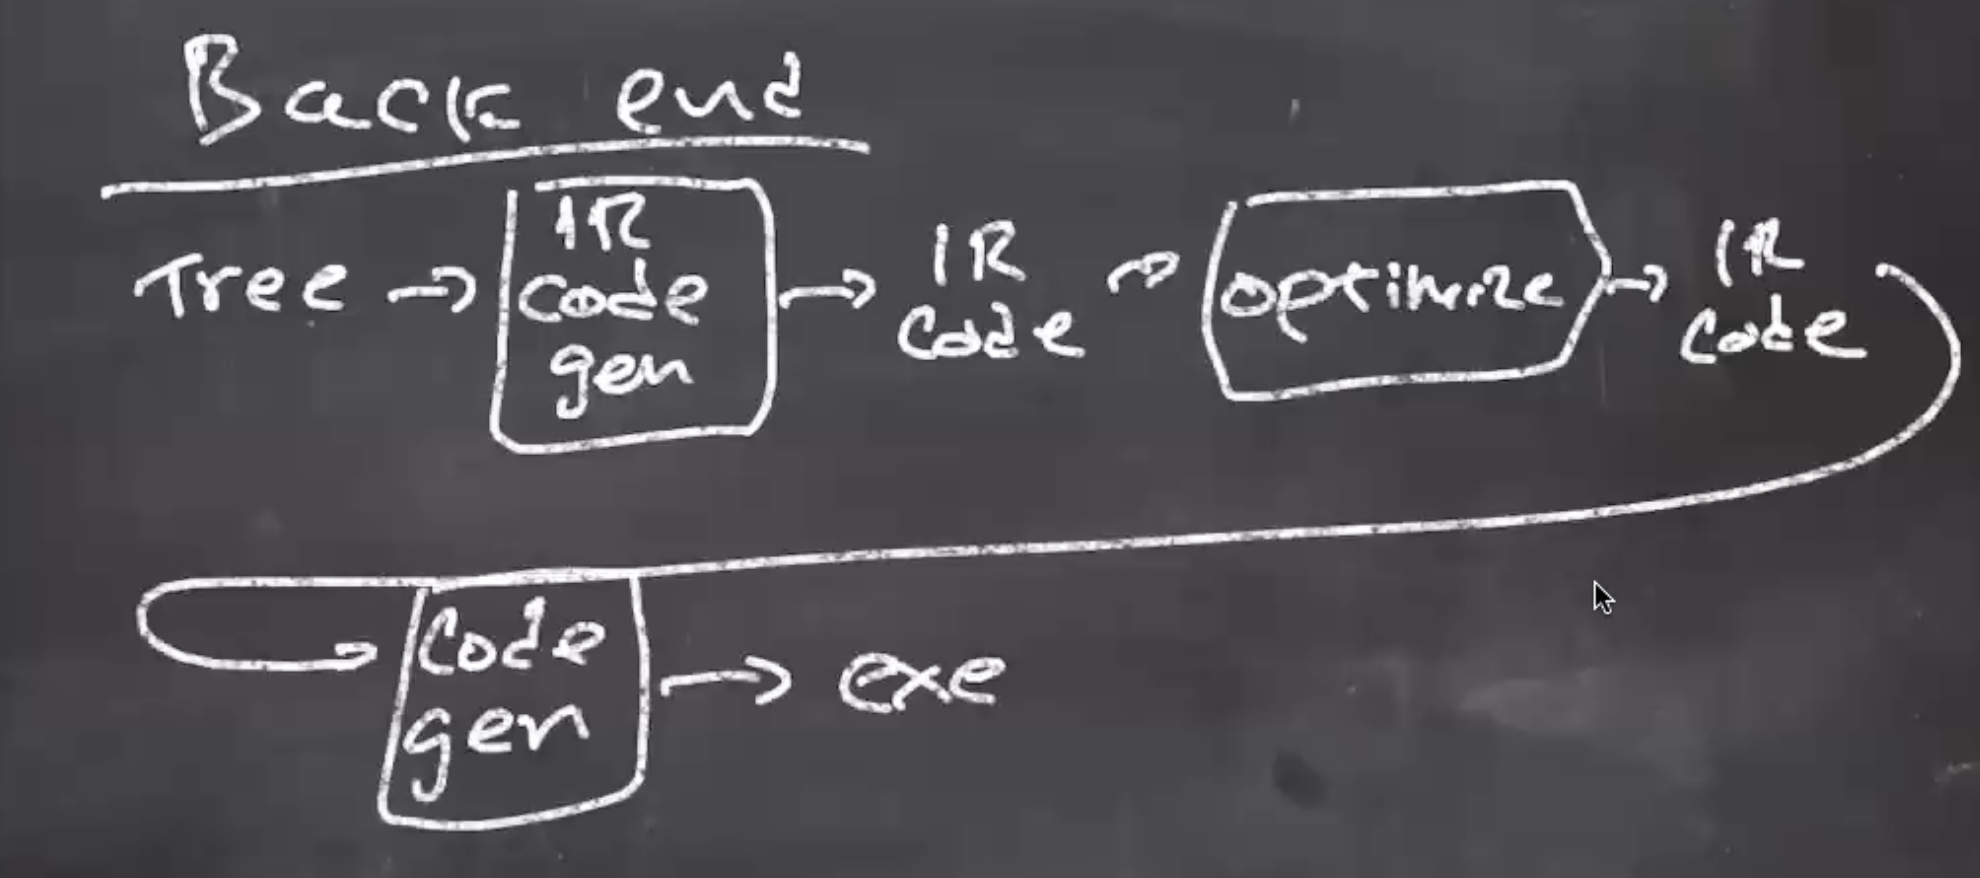 Back end
Tree → IR code gen → IR code → optimize → IR code
code gen → exe